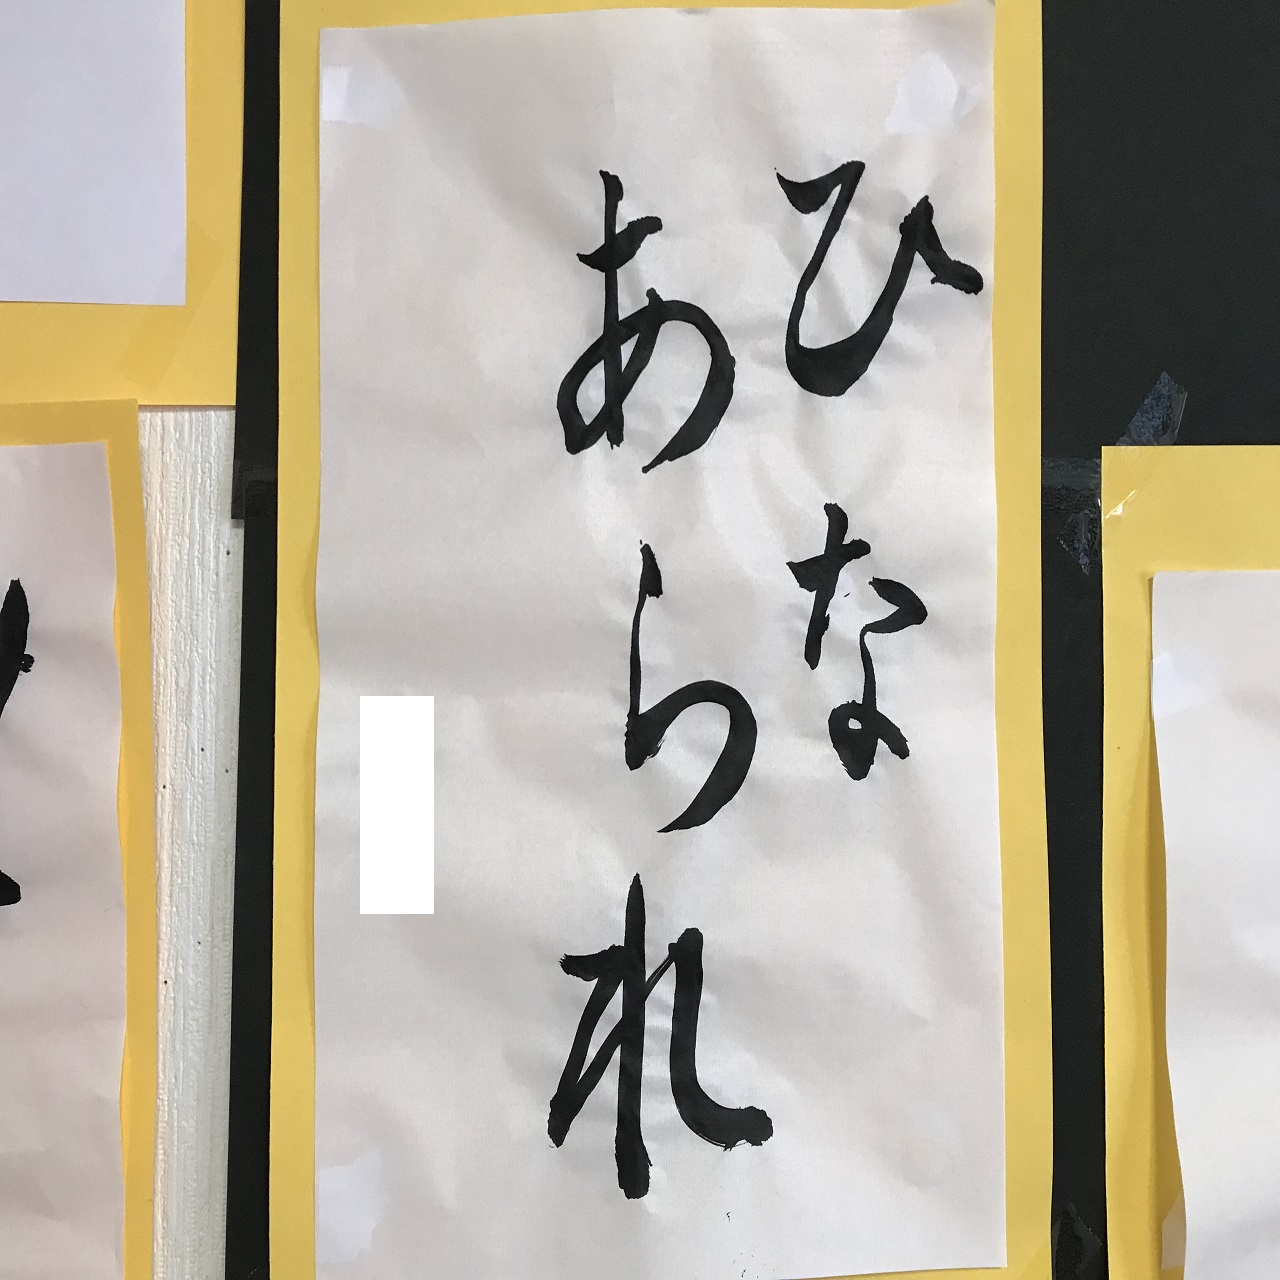 ひな
あられ